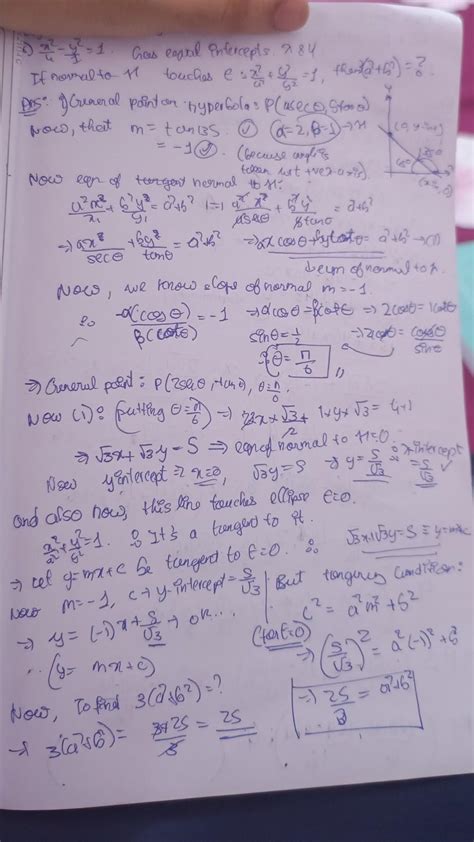 6) x²/4 - y²/1 = 1. Has equal intercepts x & y
If normal to H touches e: x²/a² + y²/b² = 1, then 3(a²+b²) = ?
Ans: 1) General point on hyperbola: P(asecθ, btanθ)
Now, that m = tan135 (α=2, β=1) → H
= -1 (because angle is taken wrt +ve x axis).
Now eqn of tangent normal to H:
a²x/x₁ + b²y/y₁ = a²+b²
⇒ ax/secθ + by/tanθ = a²+b² ⇒ αx cosθ + βy cotθ = a²+b² → (1)
Now, we know slope of normal m = -1.
-α(cosθ)/β(cotθ) = -1 ⇒ αcosθ = βcotθ ⇒ 2cosθ = 1cotθ
sinθ = 1/2 ⇒ 2cosθ = cosθ/sinθ
∴ θ = π/6
⇒ General point: P(2secθ, 1tanθ), θ = π/6
Now (1): (putting θ = π/6) ⇒ 2x × √3/2 + 1 × y × √3 = 4+1
⇒ √3x + √3y = 5 ⇒ eqn of normal to H=0
Now y intercept ⇒ x=0, √3y = 5 ⇒ y = 5/√3 = x intercept = 5/√3
And also now, this line touches ellipse E=0.
x²/a² + y²/b² = 1. ∴ It's a tangent to it. √3x + √3y = 5 ≡ y=mx+c
⇒ Let y = mx + c be tangent to E=0.
Now m=-1, c → y-intercept = 5/√3
But tangency condition:
⇒ y = (-1)x + 5/√3 → or...
c² = a²m² + b²
(for E=0)
(y = mx + c)
⇒ (5/√3)² = a²(-1)² + b²
Now, To find 3(a²+b²) = ?
⇒ 25/3 = a²+b²
→ 3(a²+b²) = 3×25/3 = 25